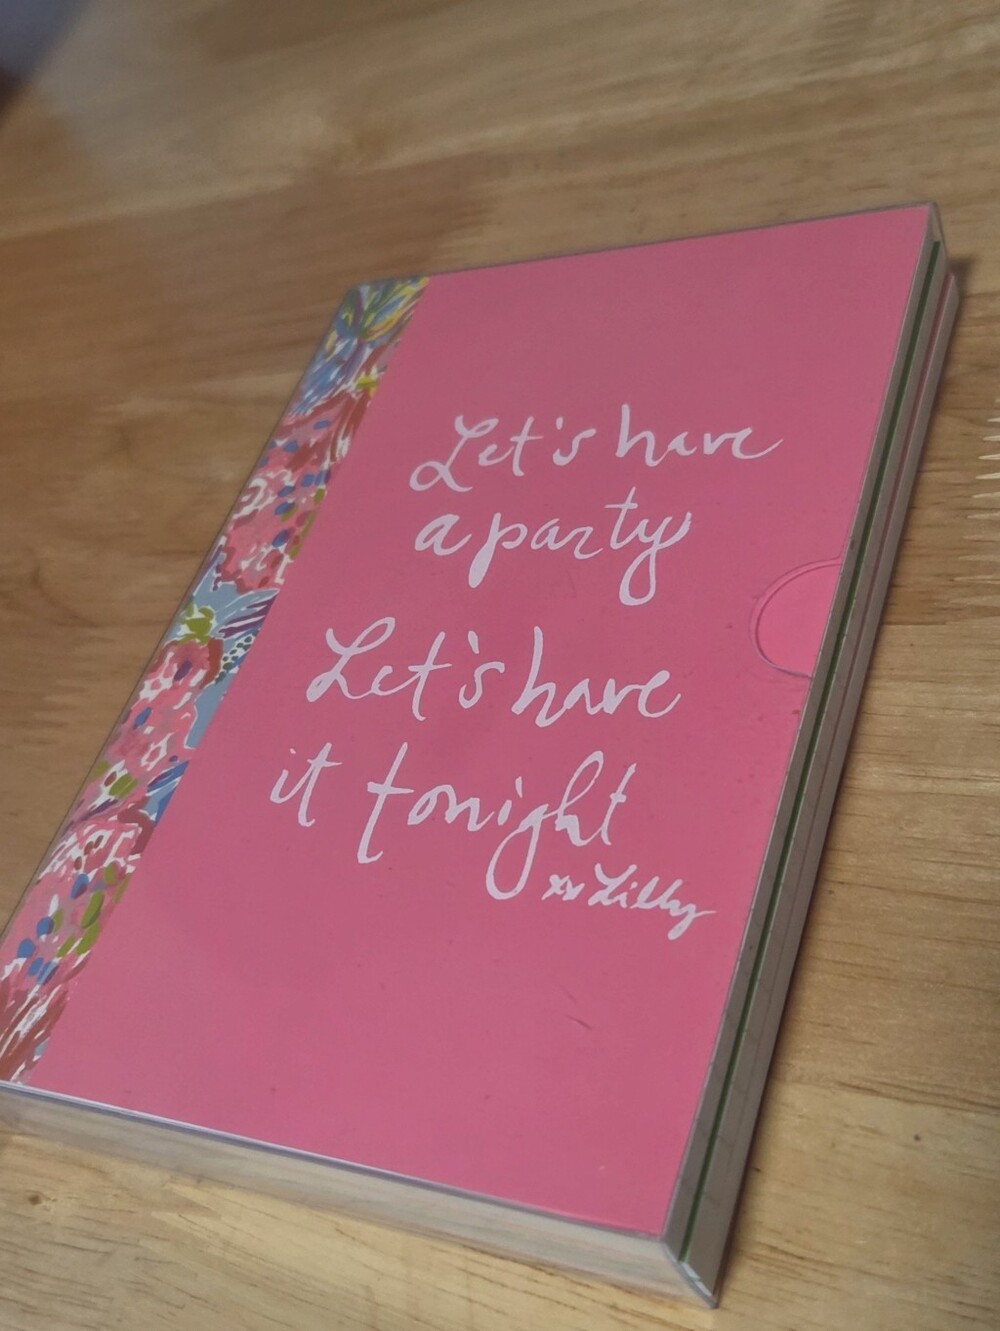 Let's have
a party
Let's have
it tonight
xx Lilly